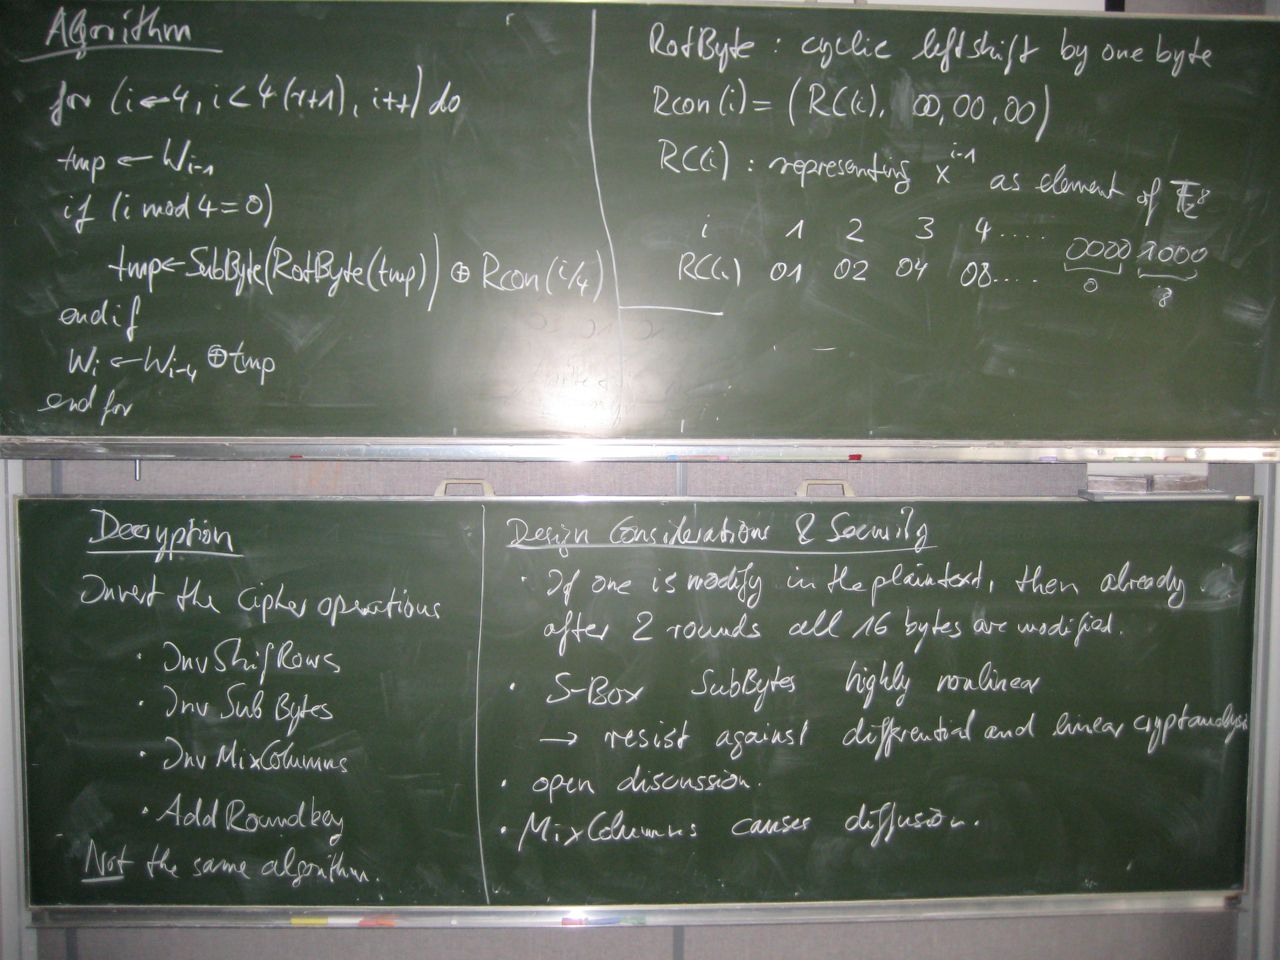 Algorithm
for (i←4, i<4(r+1), i++) do
tmp ← Wi-1
if (i mod 4 = 0)
tmp ← SubByte(RotByte(tmp)) ⊕ Rcon(i/4)
endif
Wi ← Wi-4 ⊕ tmp
end for
RotByte : cyclic left shift by one byte
Rcon(i) = (RC(i), 00, 00, 00)
RC(i) : representing x^{i-1} as element of F_{2^8}
i 1 2 3 4 ....
RC(i) 01 02 04 08.... 0000 1000
0 8
Decryption
Invert the cipher operations
· InvShifRows
· Inv Sub Bytes
· Inv MixColumns
· Add Roundkey
Not the same algorithm.
Design Considerations & Security
· If one is modify in the plaintext, then already
after 2 rounds all 16 bytes are modified.
· S-Box SubBytes highly nonlinear
→ resist against differential and linear cryptanalysis
· open discussion.
· MixColumns causes diffusion.